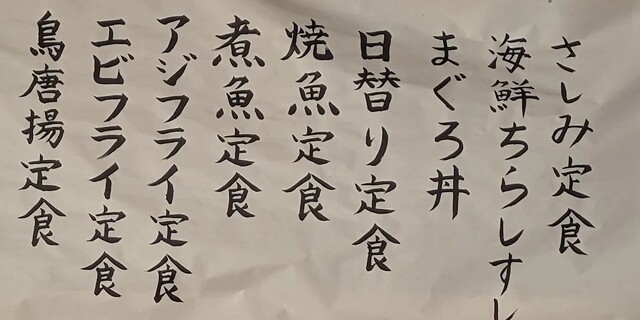 さしみ定食
海鮮ちらしすし
まぐろ丼
日替り定食
焼魚定食
煮魚定食
アジフライ定食
エビフライ定食
鳥唐揚定食